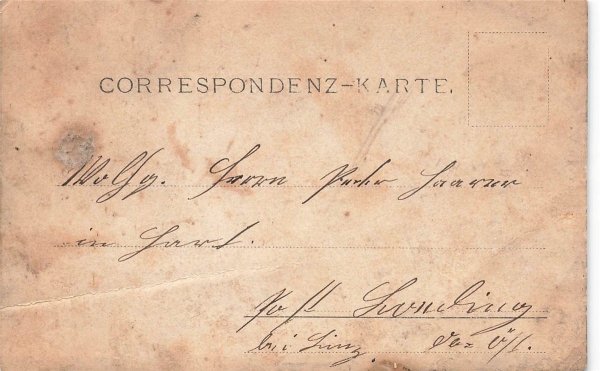 CORRESPONDENZ-KARTE.
Wolfg. Herrn Peter Haarer
in Hart.
Post Leonding
bei Linz. Ob: Öst.